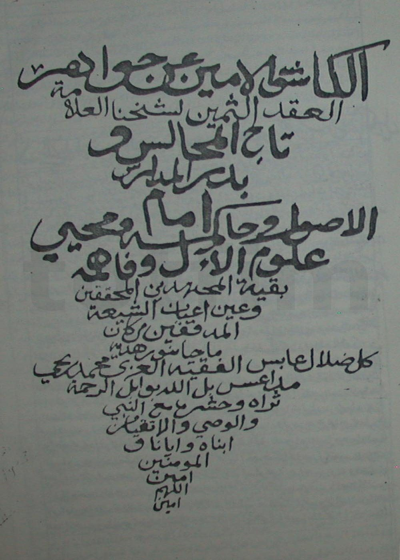 الكاشف الامين عن جواهر
العقد الثمين لشيخنا العلامة
تاج المجالس و
بدر المدارس
امام
الاصول وحاكمه ومحيي
علوم الآل وفاهمه
بقية المجتهدين المحققين
وعين اعيان الشيعة
المدققين
كل ضلال عابس الفقيه العزي محمد بن يحي
مداعس بل الله بوابل الرحمة
ثراه وحشره مع النبي
والوصي والاخيار
ابناه وايانا و
المومنين
امين
اللهم
امين